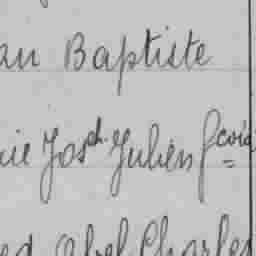 an Baptiste
rie Jos.ph Julien Fçois
ed Abel Charles